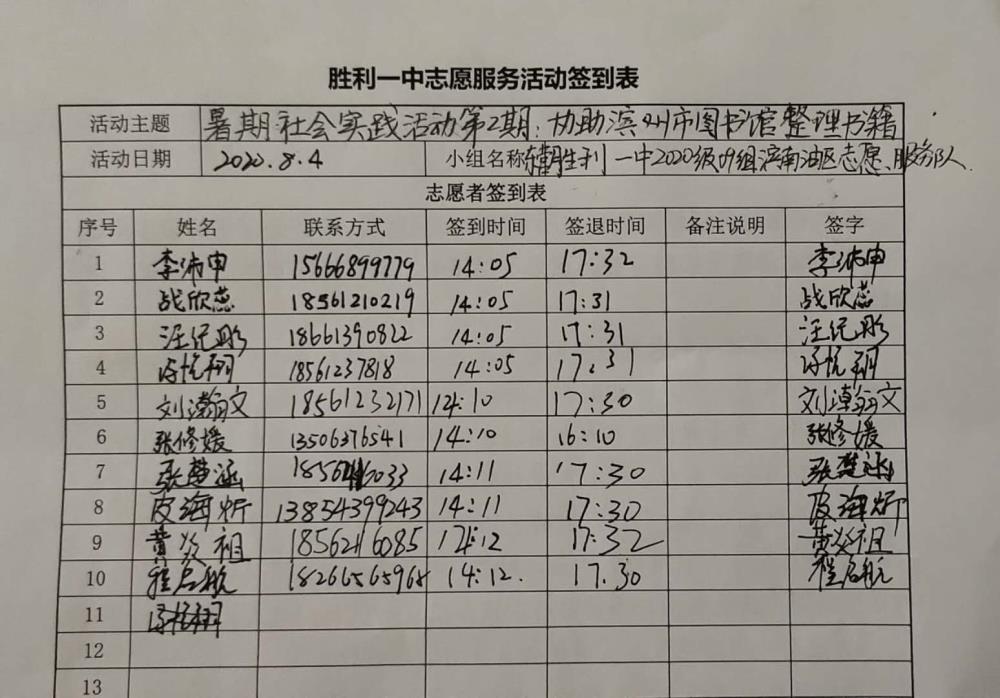 胜利一中志愿服务活动签到表
活动主题 暑期社会实践活动第2期：协助滨州市图书馆整理书籍
活动日期 2020.8.4 小组名称 胜利一中2020级09组滨南油区志愿服务队
志愿者签到表
序号 姓名 联系方式 签到时间 签退时间 备注说明 签字
1 李沛申 15666899779 14:05 17:32 李沛申
2 战欣蕊 18561210219 14:05 17:31 战欣蕊
3 汪纪彤 18661390822 14:05 17:31 汪纪彤
4 18561237818 14:05 17:31
5 刘瀚文 18561232171 14:10 17:30 刘瀚文
6 张修媛 13506376541 14:10 16:10 张修媛
7 张楚涵 14:11 17:30 张楚涵
8 皮海炘 13854399243 14:11 17:30 皮海炘
9 黄炎祖 14:12 17:32 黄炎祖
10 程启航 18266565965 14:12. 17.30 程启航
11
12
13